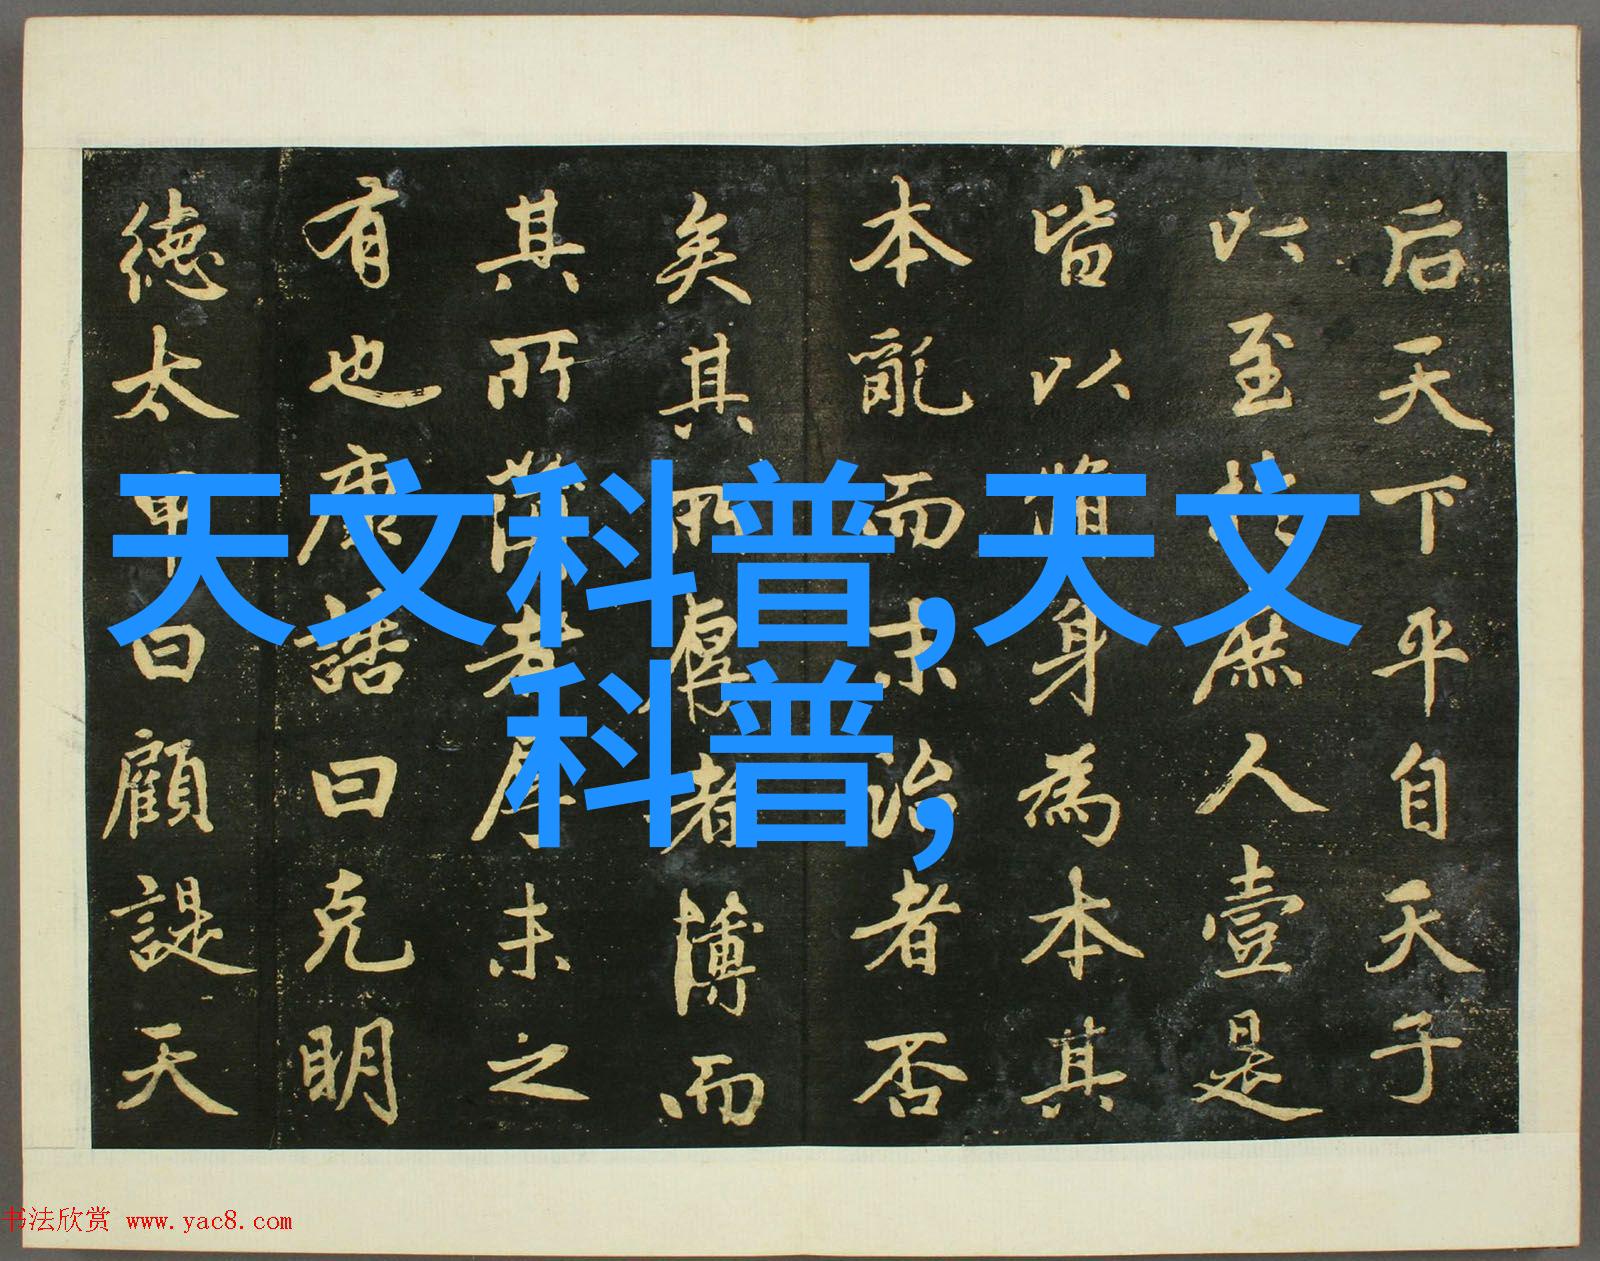 后天下平自天子
以至於庶人壹是
皆以脩身為本其
本亂而末治者否
矣其所厚者薄而
其所薄者厚未之
有也康誥曰克明
德太甲曰顧諟天
天文科普,天文
科普,
书法欣赏 www.yac8.com